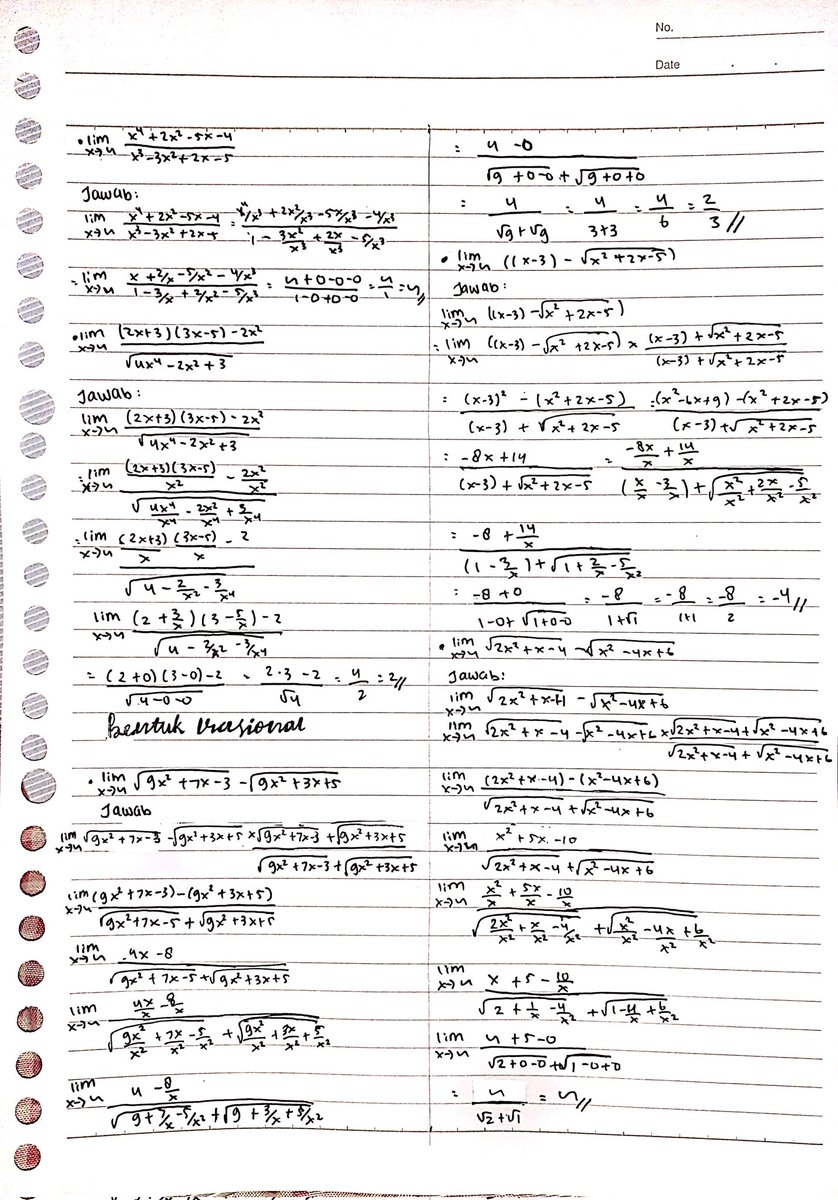 No.
Date
• lim x→∞ (x⁴ + 2x² - 5x - 4)/(x³ - 3x² + 2x - 5)
Jawab:
lim x→∞ (x⁴ + 2x² - 5x - 4)/(x³ - 3x² + 2x + 5) = (x⁴/x³ + 2x²/x³ - 5x/x³ - 4/x³)/(1 - 3x²/x³ + 2x/x³ - 5/x³)
= lim x→∞ (x + 2/x - 5/x² - 4/x³)/(1 - 3/x + 2/x² - 5/x³) = (∞ + 0 - 0 - 0)/(1 - 0 + 0 - 0) = ∞/1 = ∞//
• lim x→∞ ((2x+3)(3x-5) - 2x²)/√(4x⁴ - 2x² + 3)
Jawab:
lim x→∞ ((2x+3)(3x-5) - 2x²)/√(4x⁴ - 2x² + 3)
= lim x→∞ ((2x+3)(3x-5)/x² - 2x²/x²)/√(4x⁴/x⁴ - 2x²/x⁴ + 3/x⁴)
= lim x→∞ ((2x+3)/x (3x-5)/x - 2)/√(4 - 2/x² - 3/x⁴)
lim x→∞ ((2 + 3/x)(3 - 5/x) - 2)/√(4 - 2/x² - 3/x⁴)
= ((2+0)(3-0) - 2)/√(4-0-0) = (2·3 - 2)/√4 = 4/2 = 2//
bentuk irasional
• lim x→∞ √(9x² + 7x - 3) - √(9x² + 3x + 5)
Jawab
lim x→∞ √(9x² + 7x - 3) - √(9x² + 3x + 5) × (√(9x² + 7x - 3) + √(9x² + 3x + 5))/(√(9x² + 7x - 3) + √(9x² + 3x + 5))
lim x→∞ ((9x² + 7x - 3) - (9x² + 3x + 5))/(√(9x² + 7x - 5) + √(9x² + 3x + 5))
lim x→∞ (4x - 8)/(√(9x² + 7x - 5) + √(9x² + 3x + 5))
lim x→∞ (4x/x - 8/x)/(√(9x²/x² + 7x/x² - 5/x²) + √(9x²/x² + 3x/x² + 5/x²))
lim x→∞ (4 - 8/x)/(√(9 + 7/x - 5/x²) + √(9 + 3/x + 5/x²))
= (4 - 0)/(√(9 + 0 - 0) + √(9 + 0 + 0))
= 4/(√9 + √9) = 4/(3+3) = 4/6 = 2/3//
• lim x→∞ ((x-3) - √(x² + 2x - 5))
Jawab:
lim x→∞ ((x-3) - √(x² + 2x - 5))
= lim x→∞ ((x-3) - √(x² + 2x - 5) × ((x-3) + √(x² + 2x - 5))/((x-3) + √(x² + 2x - 5))
= ((x-3)² - (x² + 2x - 5))/((x-3) + √(x² + 2x - 5)) = ((x² - 6x + 9) - (x² + 2x - 5))/((x-3) + √(x² + 2x - 5))
= (-8x + 14)/((x-3) + √(x² + 2x - 5)) = (-8x/x + 14/x)/((x/x - 3/x) + √(x²/x² + 2x/x² - 5/x²))
= (-8 + 14/x)/((1 - 3/x) + √(1 + 2/x - 5/x²))
= (-8 + 0)/(1 - 0 + √(1+0-0)) = -8/(1+√1) = -8/(1+1) = -8/2 = -4//
• lim x→∞ √(2x² + x - 4) - √(x² - 4x + 6)
Jawab:
lim x→∞ √(2x² + x - 4) - √(x² - 4x + 6)
lim x→∞ √(2x² + x - 4) - √(x² - 4x + 6) × (√(2x² + x - 4) + √(x² - 4x + 6))/(√(2x² + x - 4) + √(x² - 4x + 6))
lim x→∞ ((2x² + x - 4) - (x² - 4x + 6))/(√(2x² + x - 4) + √(x² - 4x + 6))
lim x→∞ (x² + 5x - 10)/(√(2x² + x - 4) + √(x² - 4x + 6))
lim x→∞ (x²/x + 5x/x - 10/x)/(√(2x²/x² + x/x² - 4/x²) + √(x²/x² - 4x/x² + 6/x²))
lim x→∞ (x + 5 - 10/x)/(√(2 + 1/x - 4/x²) + √(1 - 4/x + 6/x²))
lim x→∞ (∞ + 5 - 0)/(√(2+0-0) + √(1-0+0))
= ∞/(√2 + √1) = ∞//